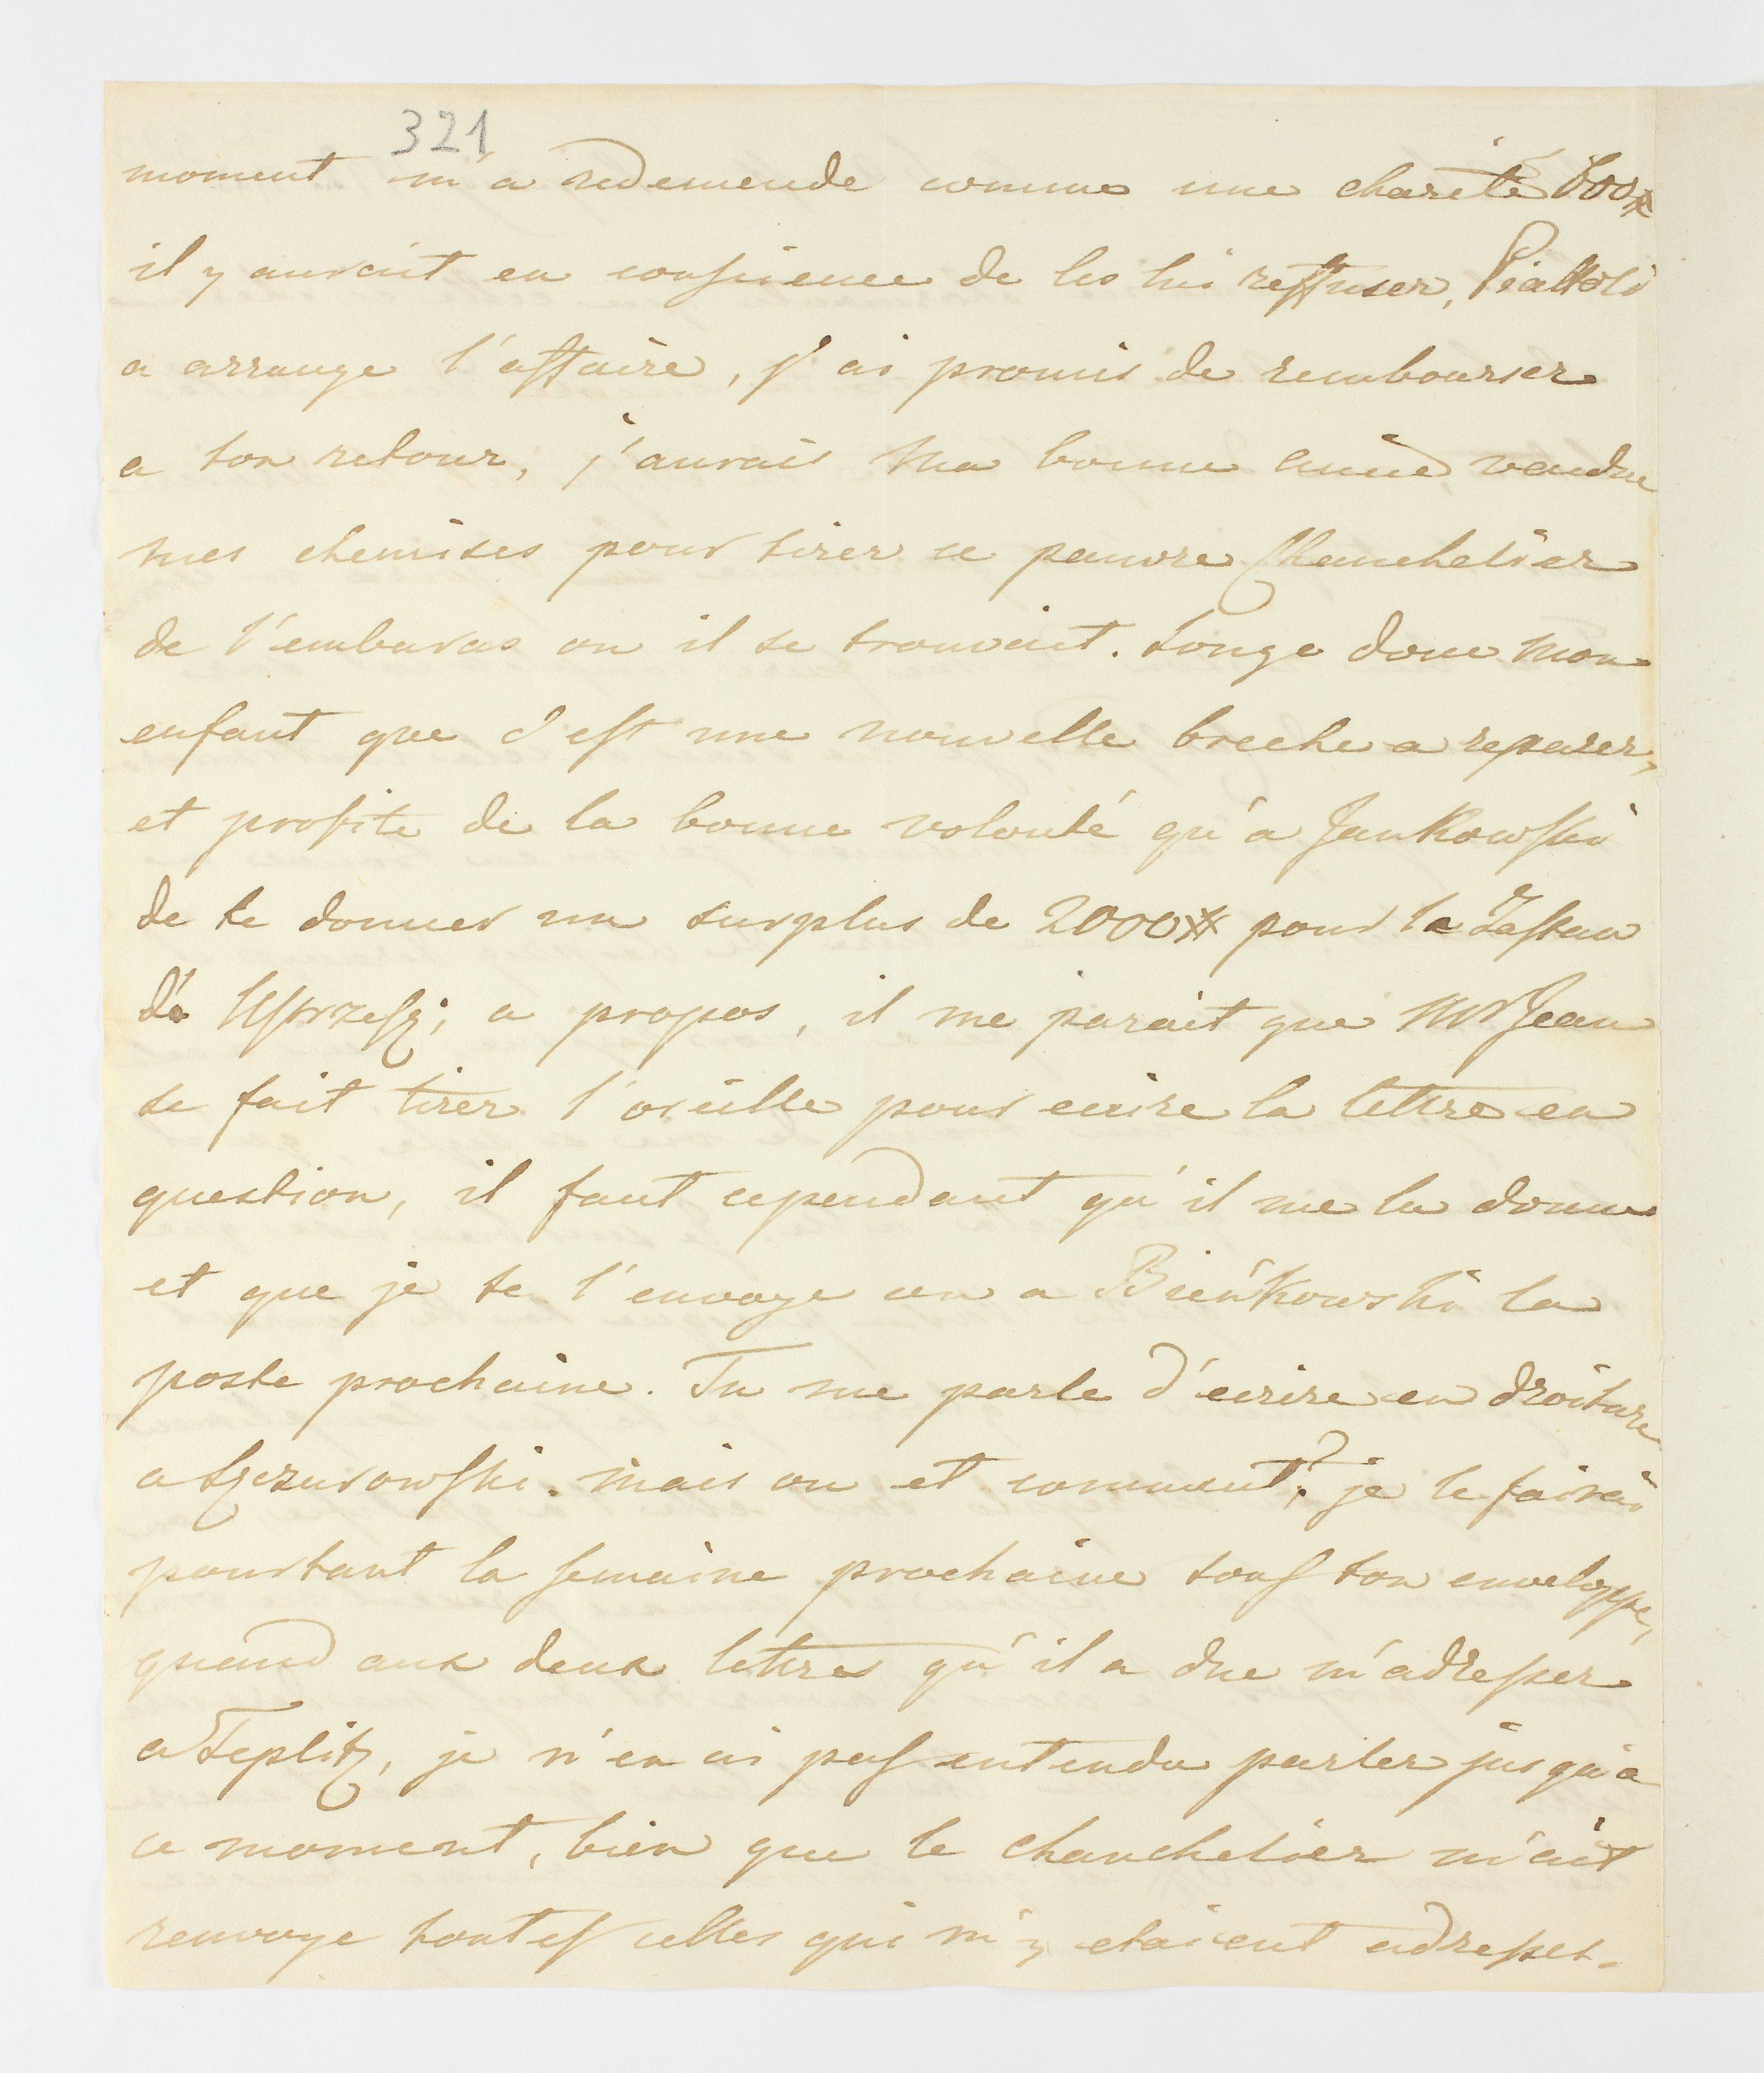 321
moment m'a redemende comme une charité 600#
il y auroit eu consience de les lui reffuser, Piattoli
a arrange l'affaire, j'ai promis de rembourser
a ton retour, j'aurais ma bonne amie vendue
mes chemises pour tirer ce pauvre Chanchelier
de l'embaras ou il se trouvait. Songe donc mon
enfant que c'est une nouvelle breche a reparer,
et profite de la bonne volonté qu'a Jankowski
de te donner un surplus de 2000# pour la Zastaw
de a propos, il me parait que Mr Jean
se fait tirer l'oreille pour ecrire la lettre en
question, il faut cependant qu'il me la donne
et que je te l'envoye ou a Bieńkowski la
poste prochaine. Tu me parle d'ecrire en droiture
a Szczurowski. mais ou et comment? je le fairai
pourtant la semaine prochaine sous ton enveloppe,
quand aux deux lettres qu'il a due m'adresser
a Teplitz, je n'en ai pas entendu parler jusqu'a
ce moment, bien que le chanchelier m'ait
renvoye toutes celles qui m'y etaient adresses.